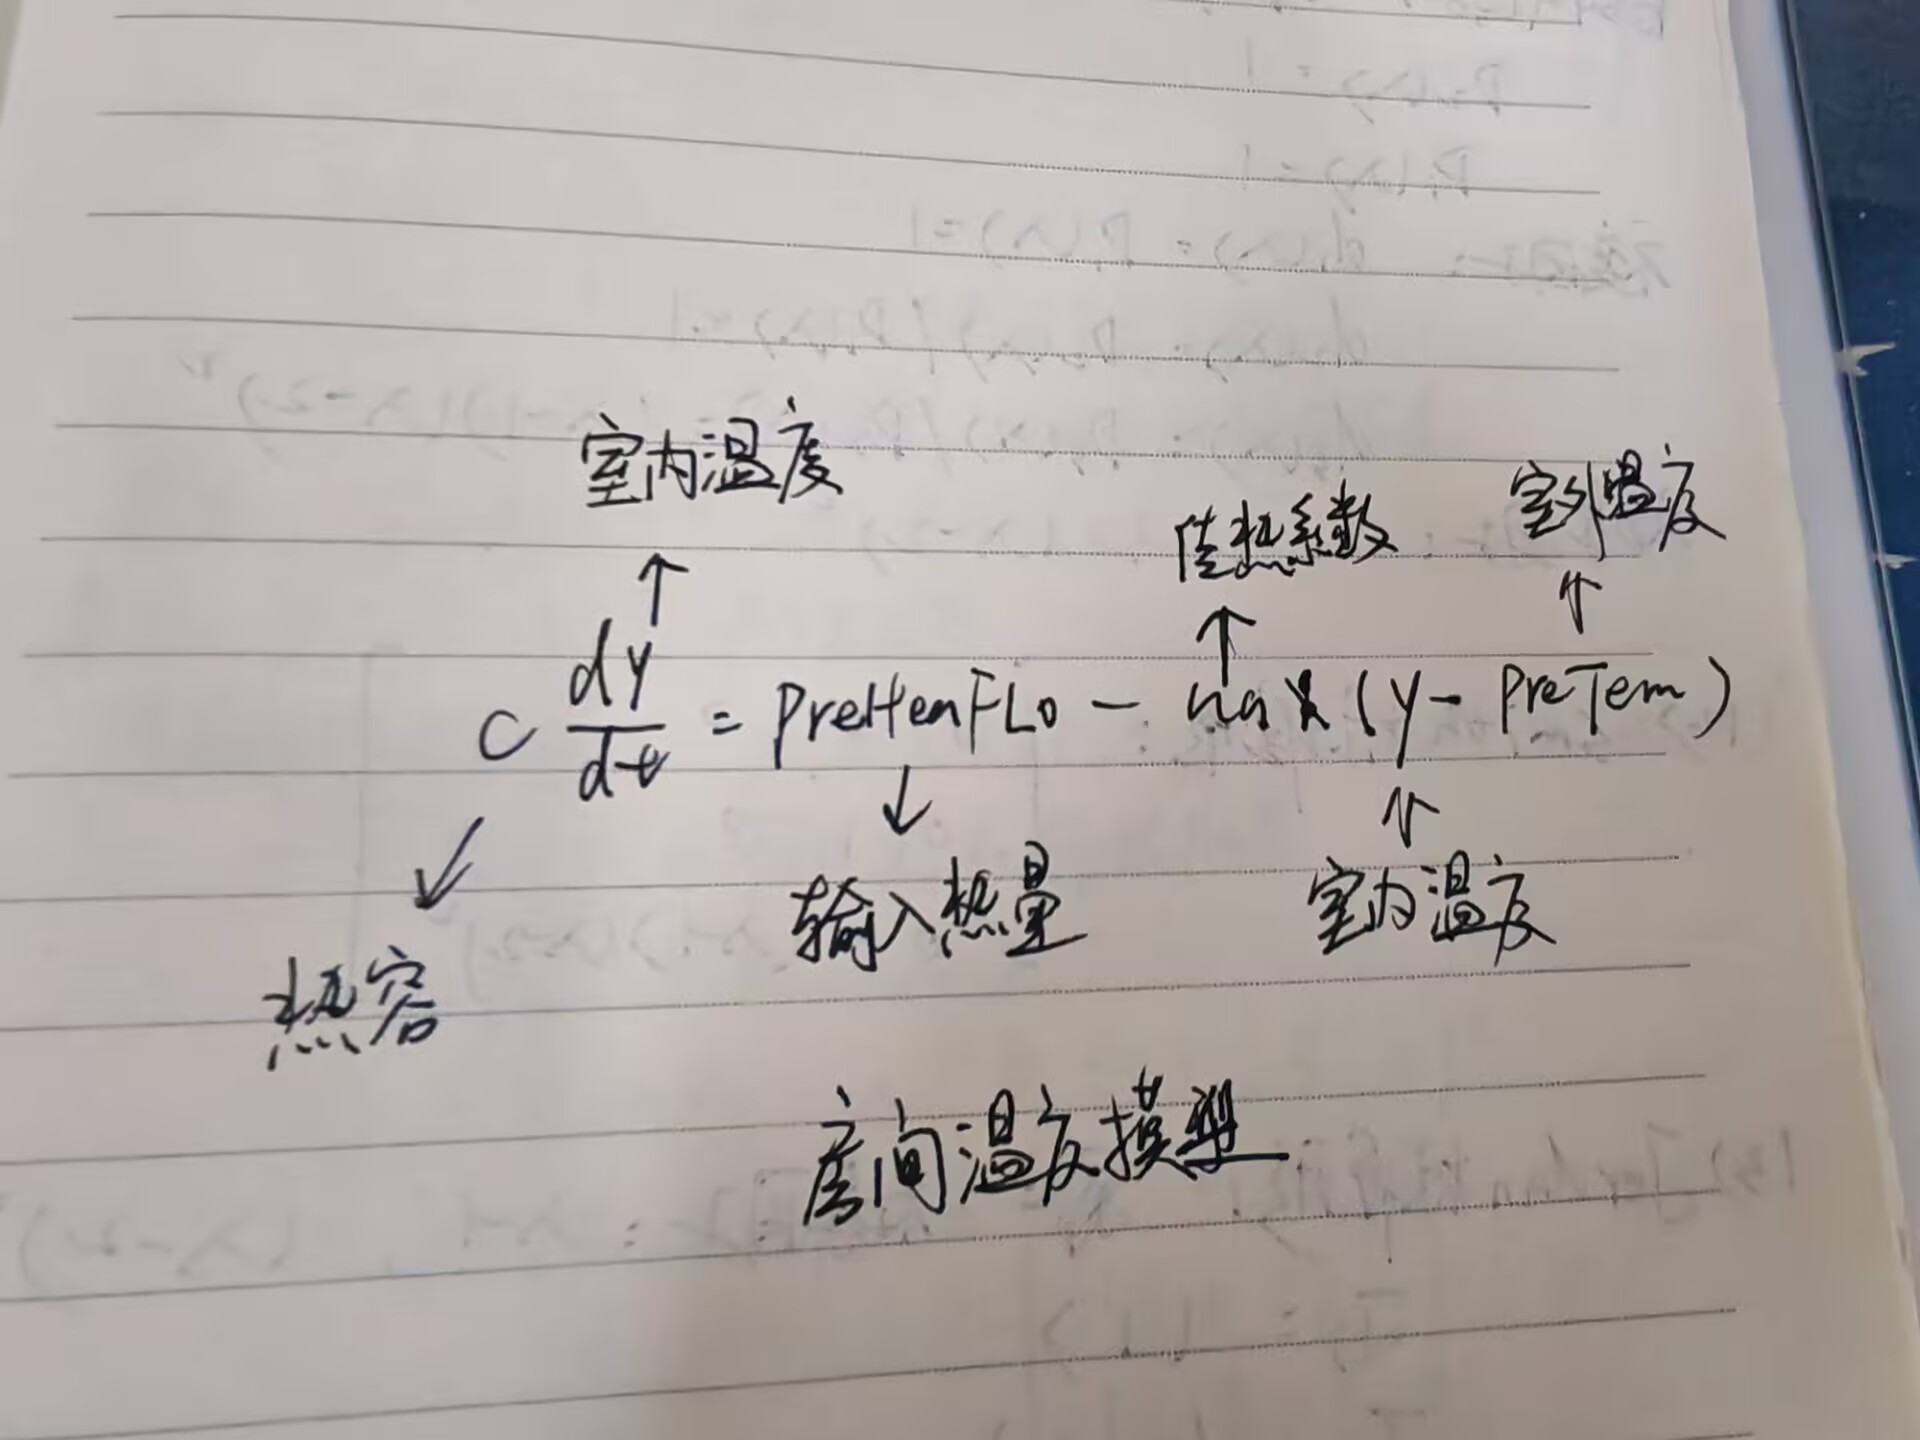 室内温度
传热系数 室外温度
C dy/dt = PreHeaFLo - ua × (y - PreTem)
热容 输入热量 室内温度
房间温度模型